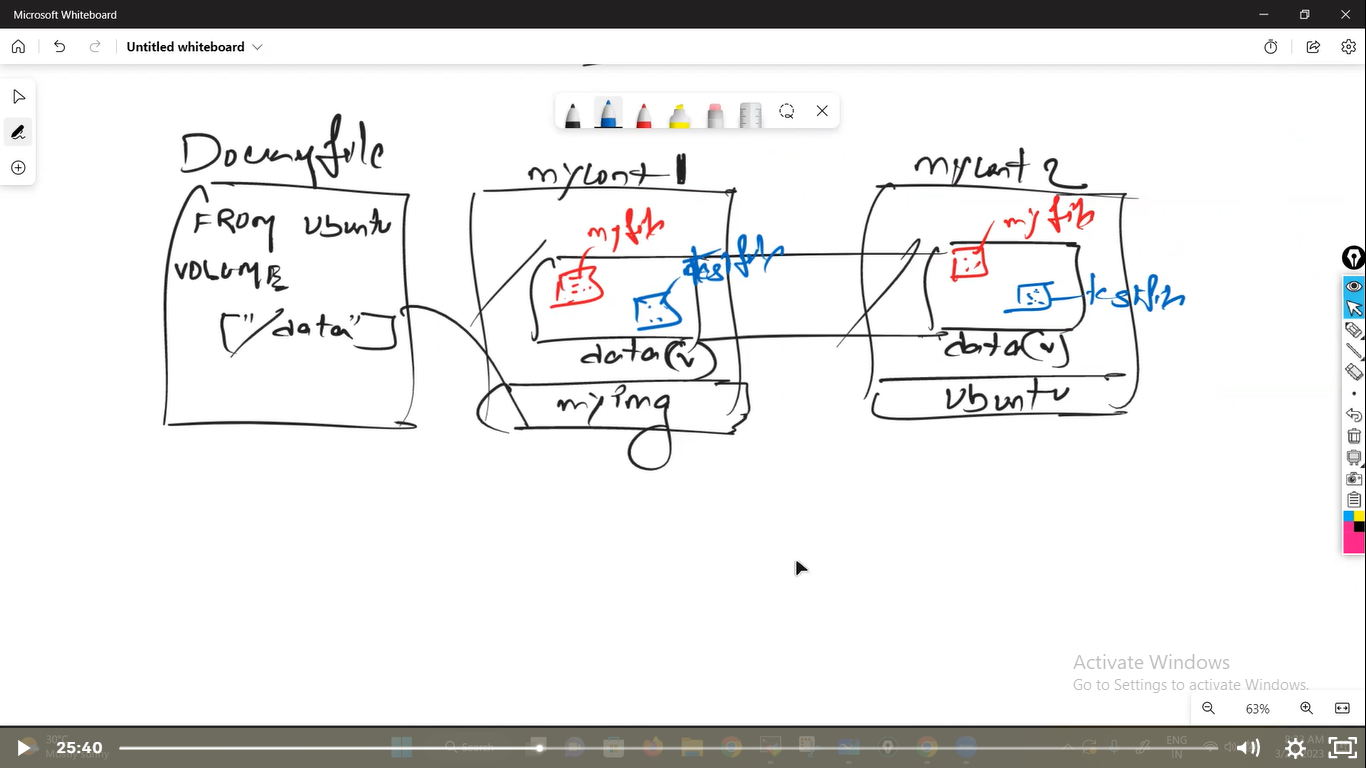 Microsoft Whiteboard
Untitled whiteboard
Dockerfile
FROM Ubuntu
VOLUME
["/data"]
mycont 1
myfile
testfile
data(v)
myimg
mycont 2
myfile
testfile
data(v)
Ubuntu
Activate Windows
Go to Settings to activate Windows.
63%
25:40
30°C
Search
ENG
IN